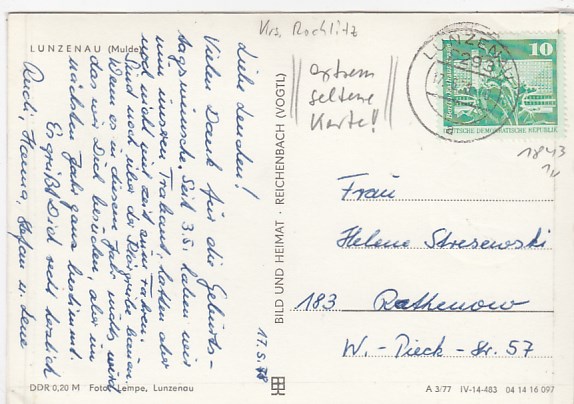 LUNZENAU (Mulde)
Krs. Rochlitz
extrem
seltene
Karte!
LUNZENAU
10
DEUTSCHE DEMOKRATISCHE REPUBLIK
1843
Liebe Lenchen!
Vielen Dank für die Geburts-
tagswünsche. Seit 3.5. haben wir
nun unseren Trabant, hatten aber
noch nicht viel Zeit zum Fahren.
Sind noch über der Bauen.
Wenn es in diesem Jahr nichts wird
das wir Dich besuchen, aber im
nächsten Jahr ganz bestimmt.
Es grüßt Dich recht herzlich
Rudi, Hanna, Stefan u. Lene
17.5.78
BILD UND HEIMAT · REICHENBACH (VOGTL)
Frau
Helene Stresewski
183 Rathenow
W.-Pieck-Str. 57
DDR 0,20 M Foto: Lempe, Lunzenau
A 3/77 IV-14-483 04 14 16 097